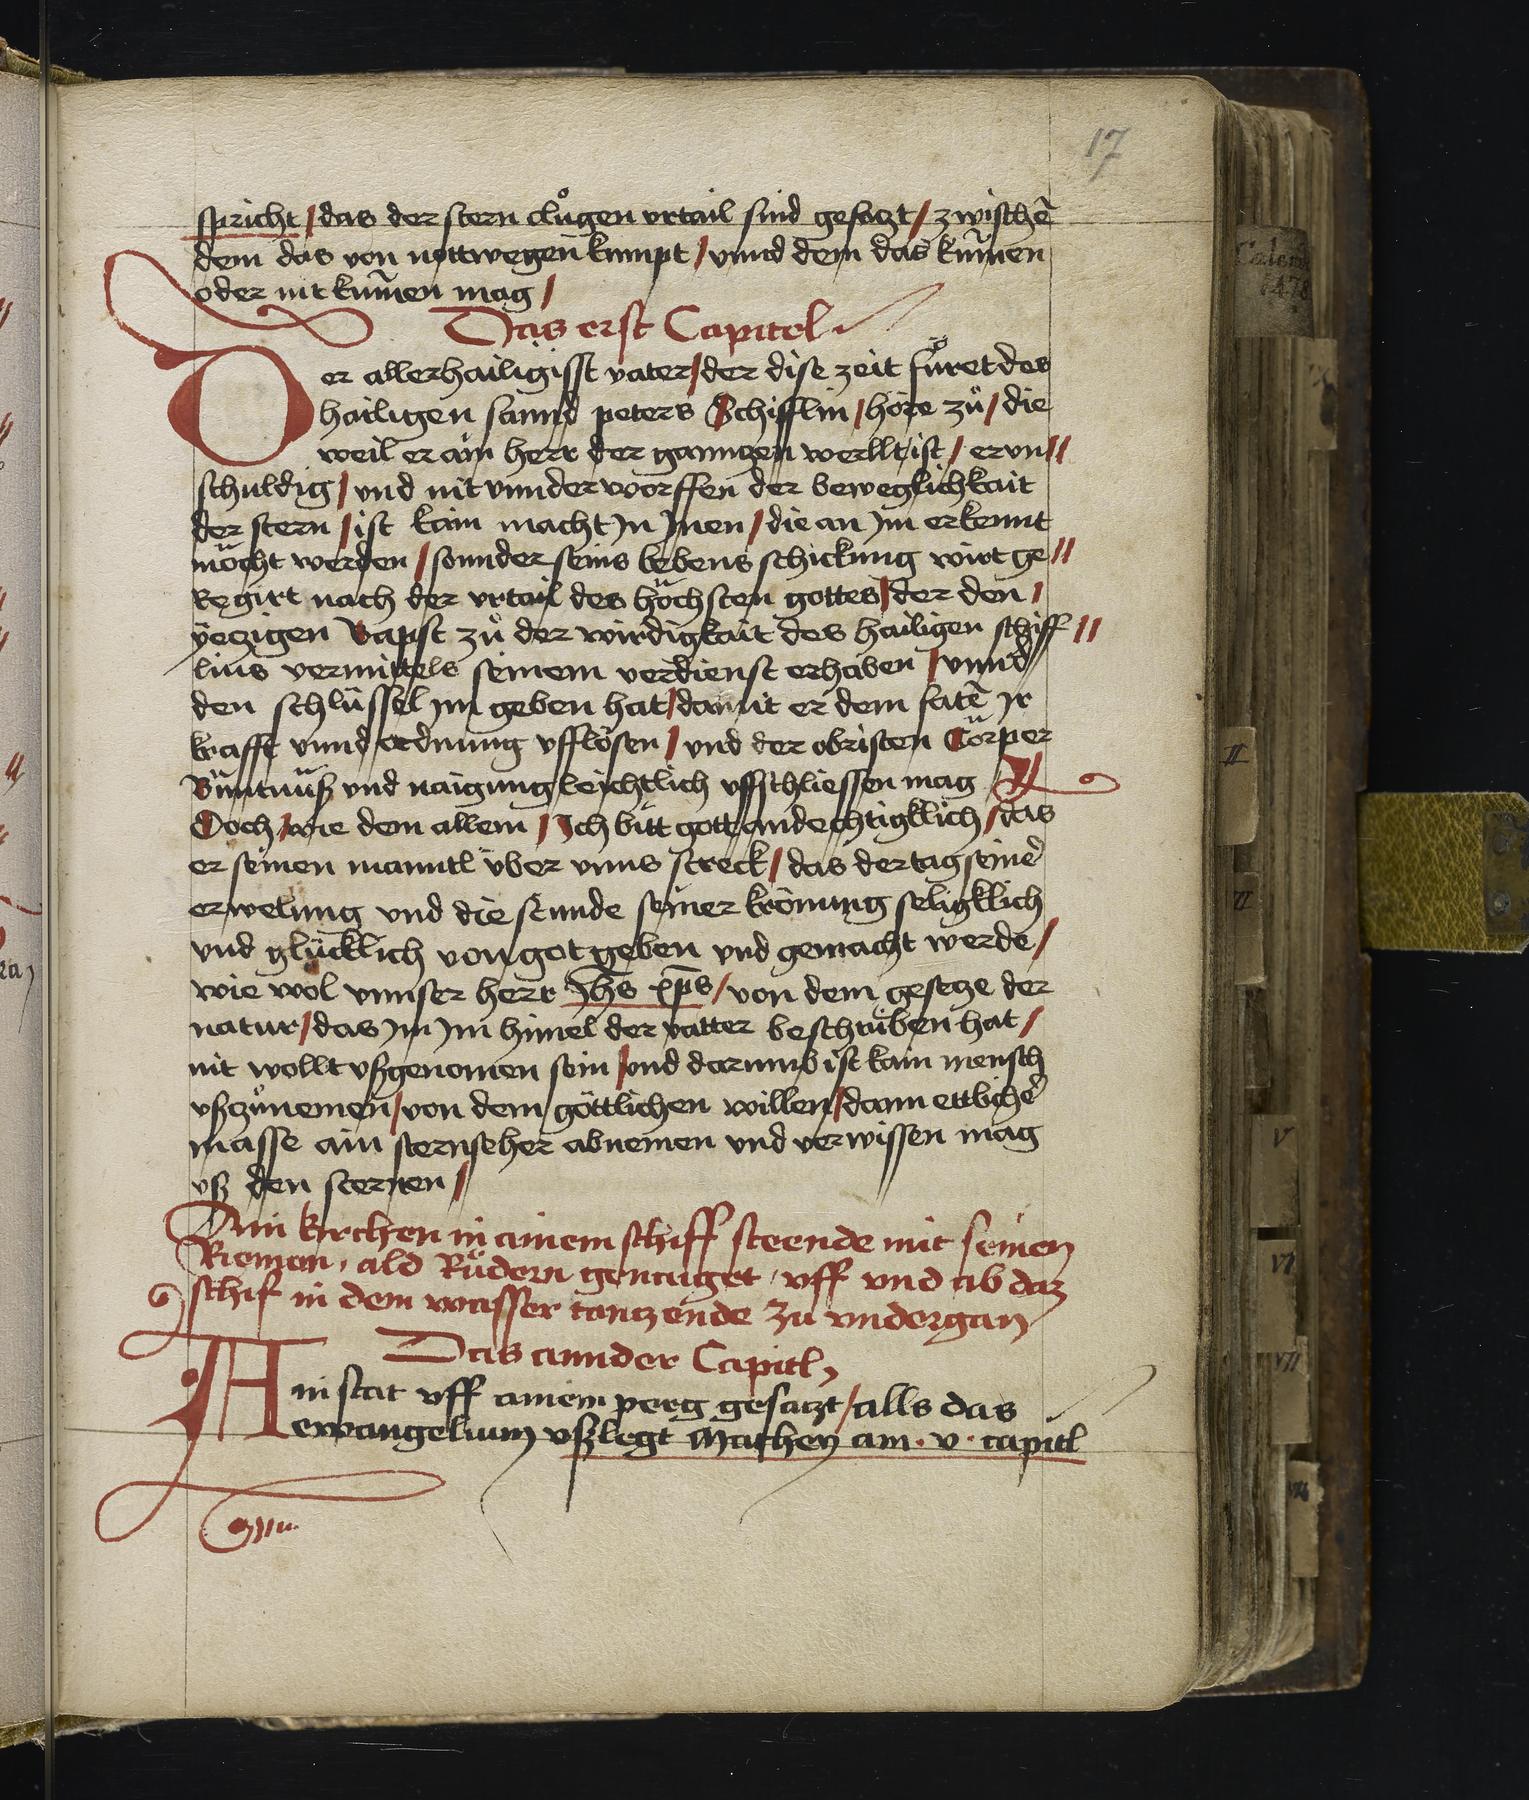 17
spricht / das der stern clůgen vrtail sind gesatzt / zwischē
dem das von nottwegen kumpt / vnnd dem das kum̄en
oder nit kum̄en mag /
Das erst Capitel
Der allerhailigisst vater / der dise zeit fůret des
hailigen sannd peters Schifflin / höre zů / die
weil er ain herr der ganntzen werllt ist / er vn//
schuldig / vnd nit vnnderworffen der beweglichkait
der stern / ist kain macht in Inen / die an Im erkennt
möcht werden / sonnder seins lebens schickung wirt ge//
Regirt nach der vrtail des höchsten gottes / der den /
yetzigen Bapst zů der wirdigkait des hailigen schiff//
lins vermittels seinem verdienst erhaben / vnnd
den schlüssel im geben hat / damit er dem fatē Ir
krafft vnnd ordnung vfflösen / vnd der obristen Cörper
Büntnüß vnd naigung leichtlich vffschliessen mag
Doch / wie dem allem / Ich bitt gott anndechtigklich / das
er seinen manntl über vnns streck / das der tag seiner
erwelung vnd die stunde seiner krönung seligklich
vnd glücklich von got geben vnd gemacht werde /
wie wol vnnser herr Jhs xps / von dem gesetze der
natur / das im im himel der vatter beschriben hat /
nit wollt vßgenomen sein / vnd darumb ist kain mensch
vßzůnemen / von dem göttlichen willen / dann ettlicher
masse ain sternseher abnemen vnd verwissen mag
vß den sternen /
Ain kirchen in ainem schiff steende mit seinen
Riemen, ald Růdern genaiget, vff vnd ab daz
schif in dem wasser tantzende zu vndergan
Das annder Capitl,
Ain stat vff ainem perg gesatzt / alls das
ewangelium vßlegt Mathey am · v · capitl
II
V
VI
VII